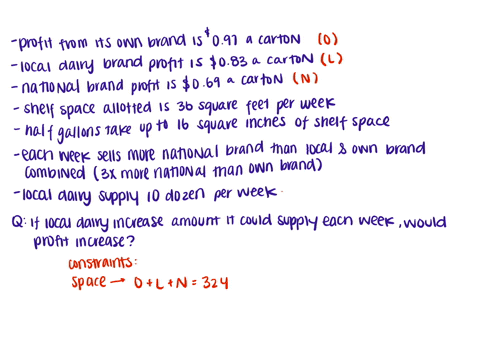 -profit from its own brand is $0.97 a carton (O)
-local dairy brand profit is $0.83 a carton (L)
-national brand profit is $0.69 a carton (N)
-shelf space allotted is 36 square feet per week
-half gallons take up to 16 square inches of shelf space
-each week sells more national brand than local & own brand
combined (3x more national than own brand)
-local dairy supply 10 dozen per week
Q: if local dairy increase amount it could supply each week, would
profit increase?
constraints:
space → O+L+N = 324